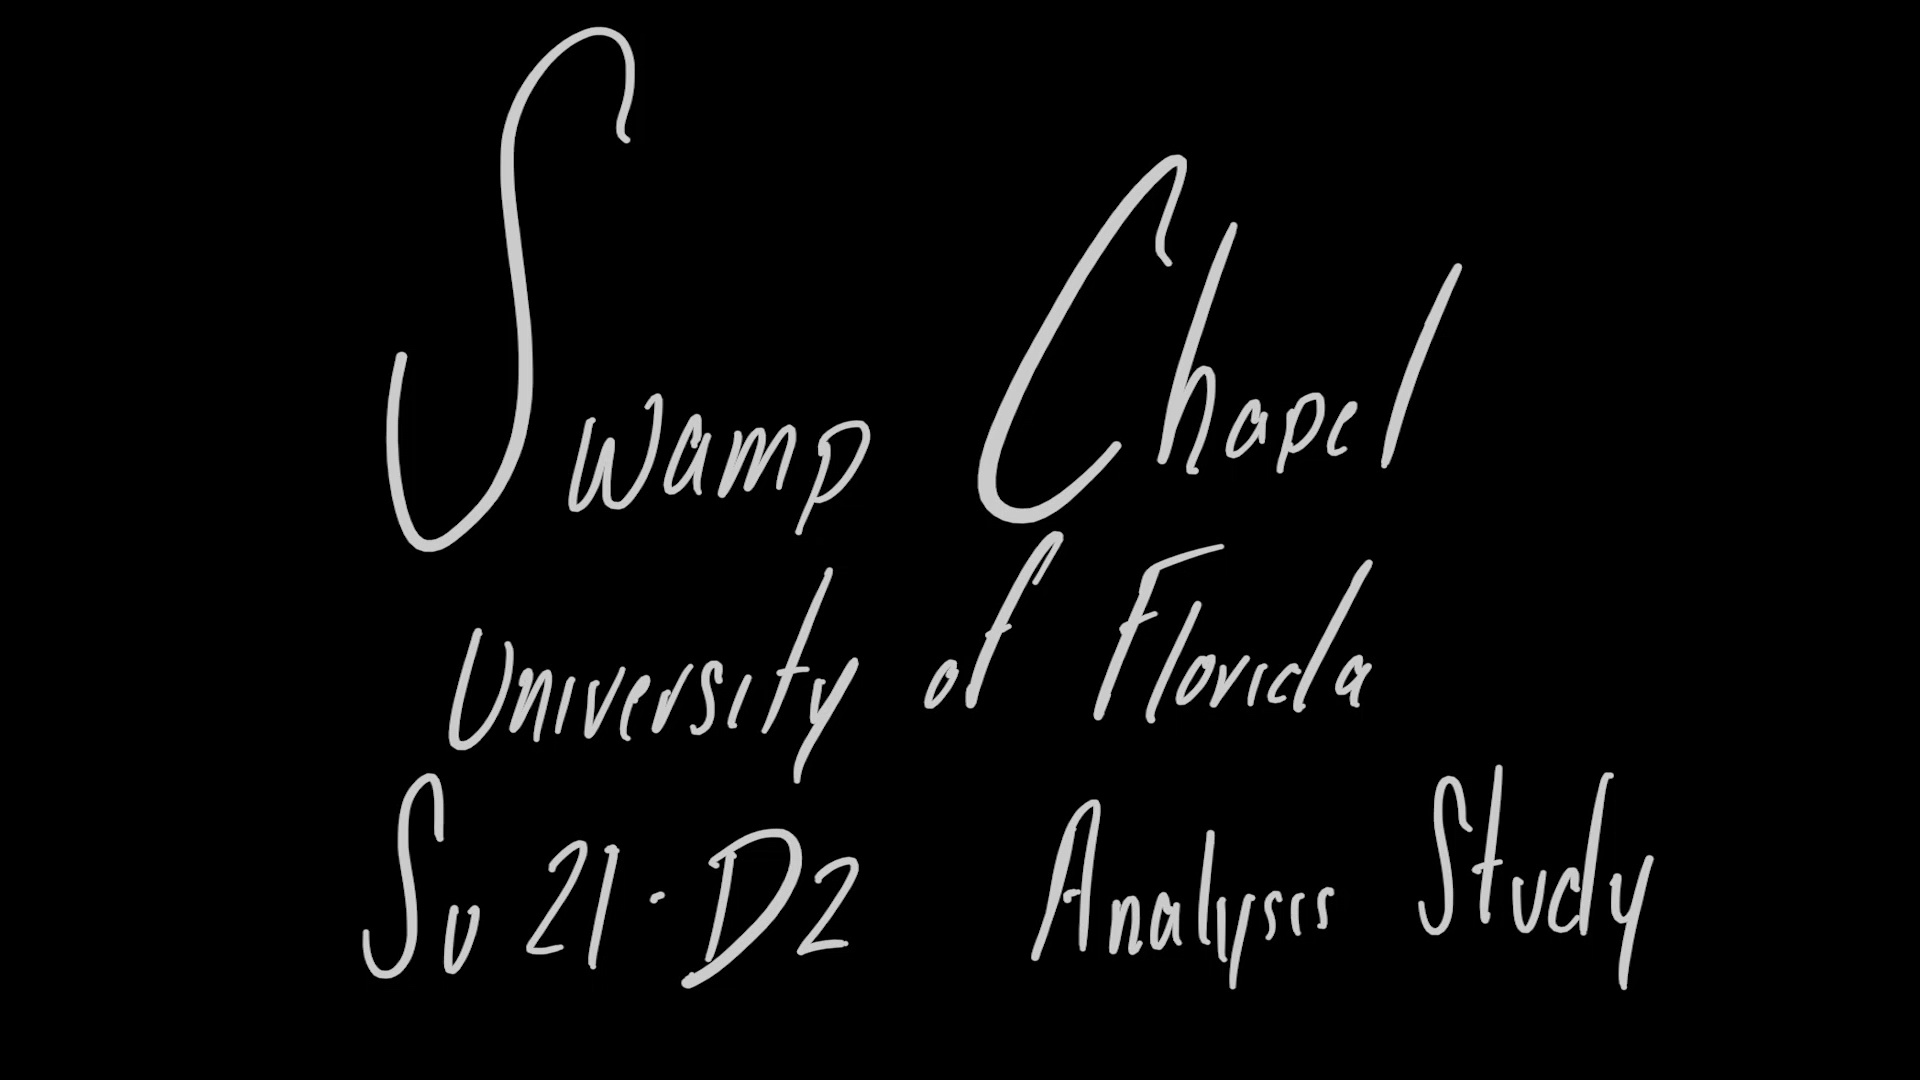 Swamp Chapel
University of Florida
Su 21 · D2 Analysis Study